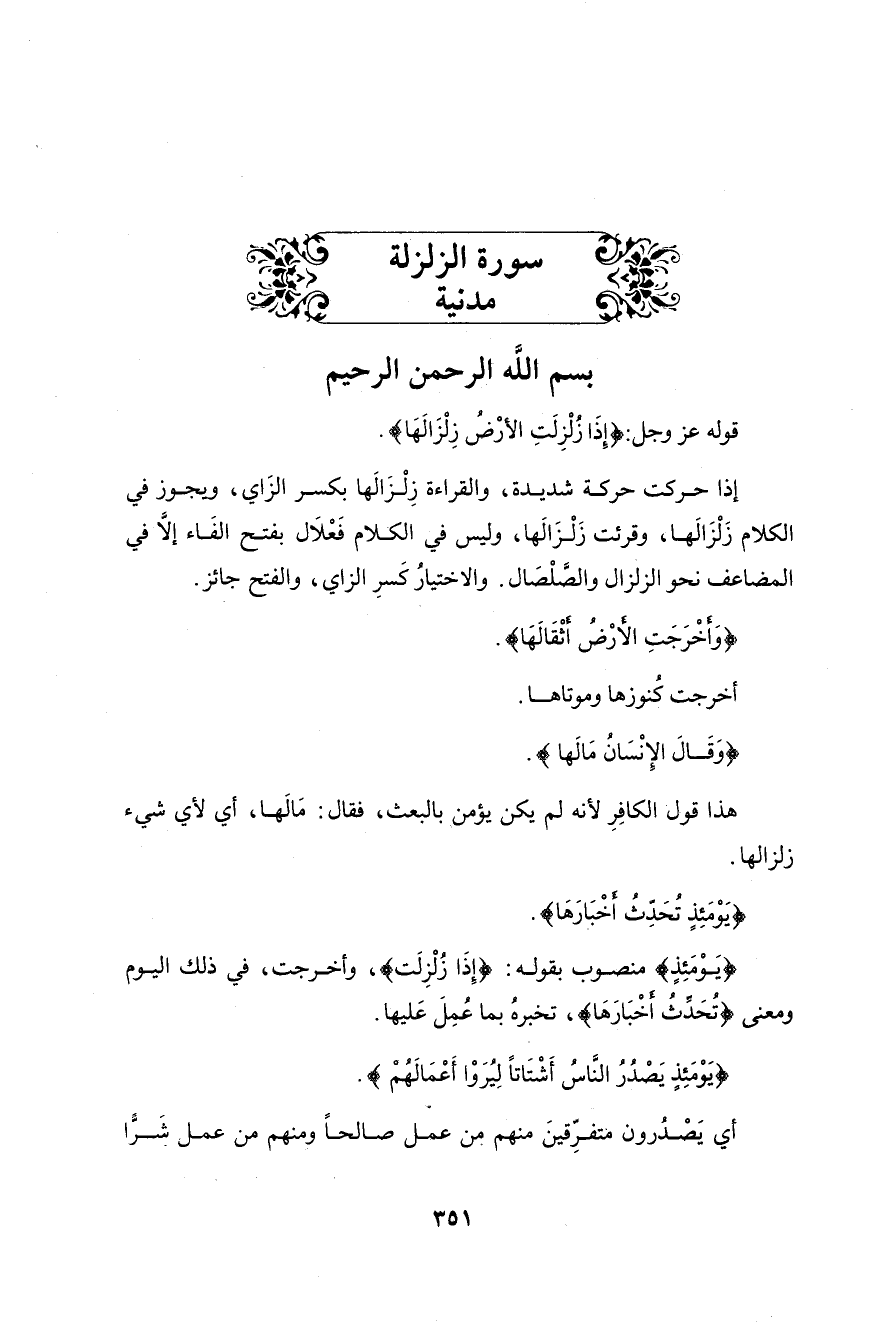 سورة الزلزلة
مدنية
بسم اللَّه الرحمن الرحيم
قوله عز وجل:﴿إِذَا زُلْزِلَتِ الأرْضُ زِلْزَالَهَا﴾.
إذا حركت حركة شديدة، والقراءة زِلْزَالَها بكسر الزَاي، ويجوز في
الكلام زَلْزَالَها، وقرئت زَلْزَالَها، وليس في الكلام فَعْلَال بفتح الفَاء إلَّا في
المضاعف نحو الزلزال والصَّلْصَال. والاختيارُ كَسرِ الزاي، والفتح جائز.
﴿وَأَخْرَجَتِ الأَرْضُ أَثْقَالَهَا﴾.
أخرجت كُنوزها وموتاها.
﴿وَقَالَ الإِنْسَانُ مَالَها ﴾.
هذا قول الكافِرِ لأنه لم يكن يؤمن بالبعث، فقال: مَالَها، أي لأي شيء
زلزالها.
﴿يَوْمَئِذٍ تُحَدِّثُ أَخْبَارَهَا﴾.
﴿يَوْمَئِذٍ﴾ منصوب بقوله: ﴿إِذَا زُلْزِلَت﴾، وأخرجت، في ذلك اليوم
ومعنى ﴿تُحَدِّثُ أَخْبَارَهَا﴾، تخبرهُ بما عُمِلَ عَليها.
﴿يَوْمَئِذٍ يَصْدُرُ النَّاسُ أَشْتَاتاً لِيُرَوْا أَعْمَالَهُمْ ﴾.
أي يَصْدُرون متفرِّقينَ منهم مِن عمل صالحاً ومنهم من عمل شَرًّا
٣٥١